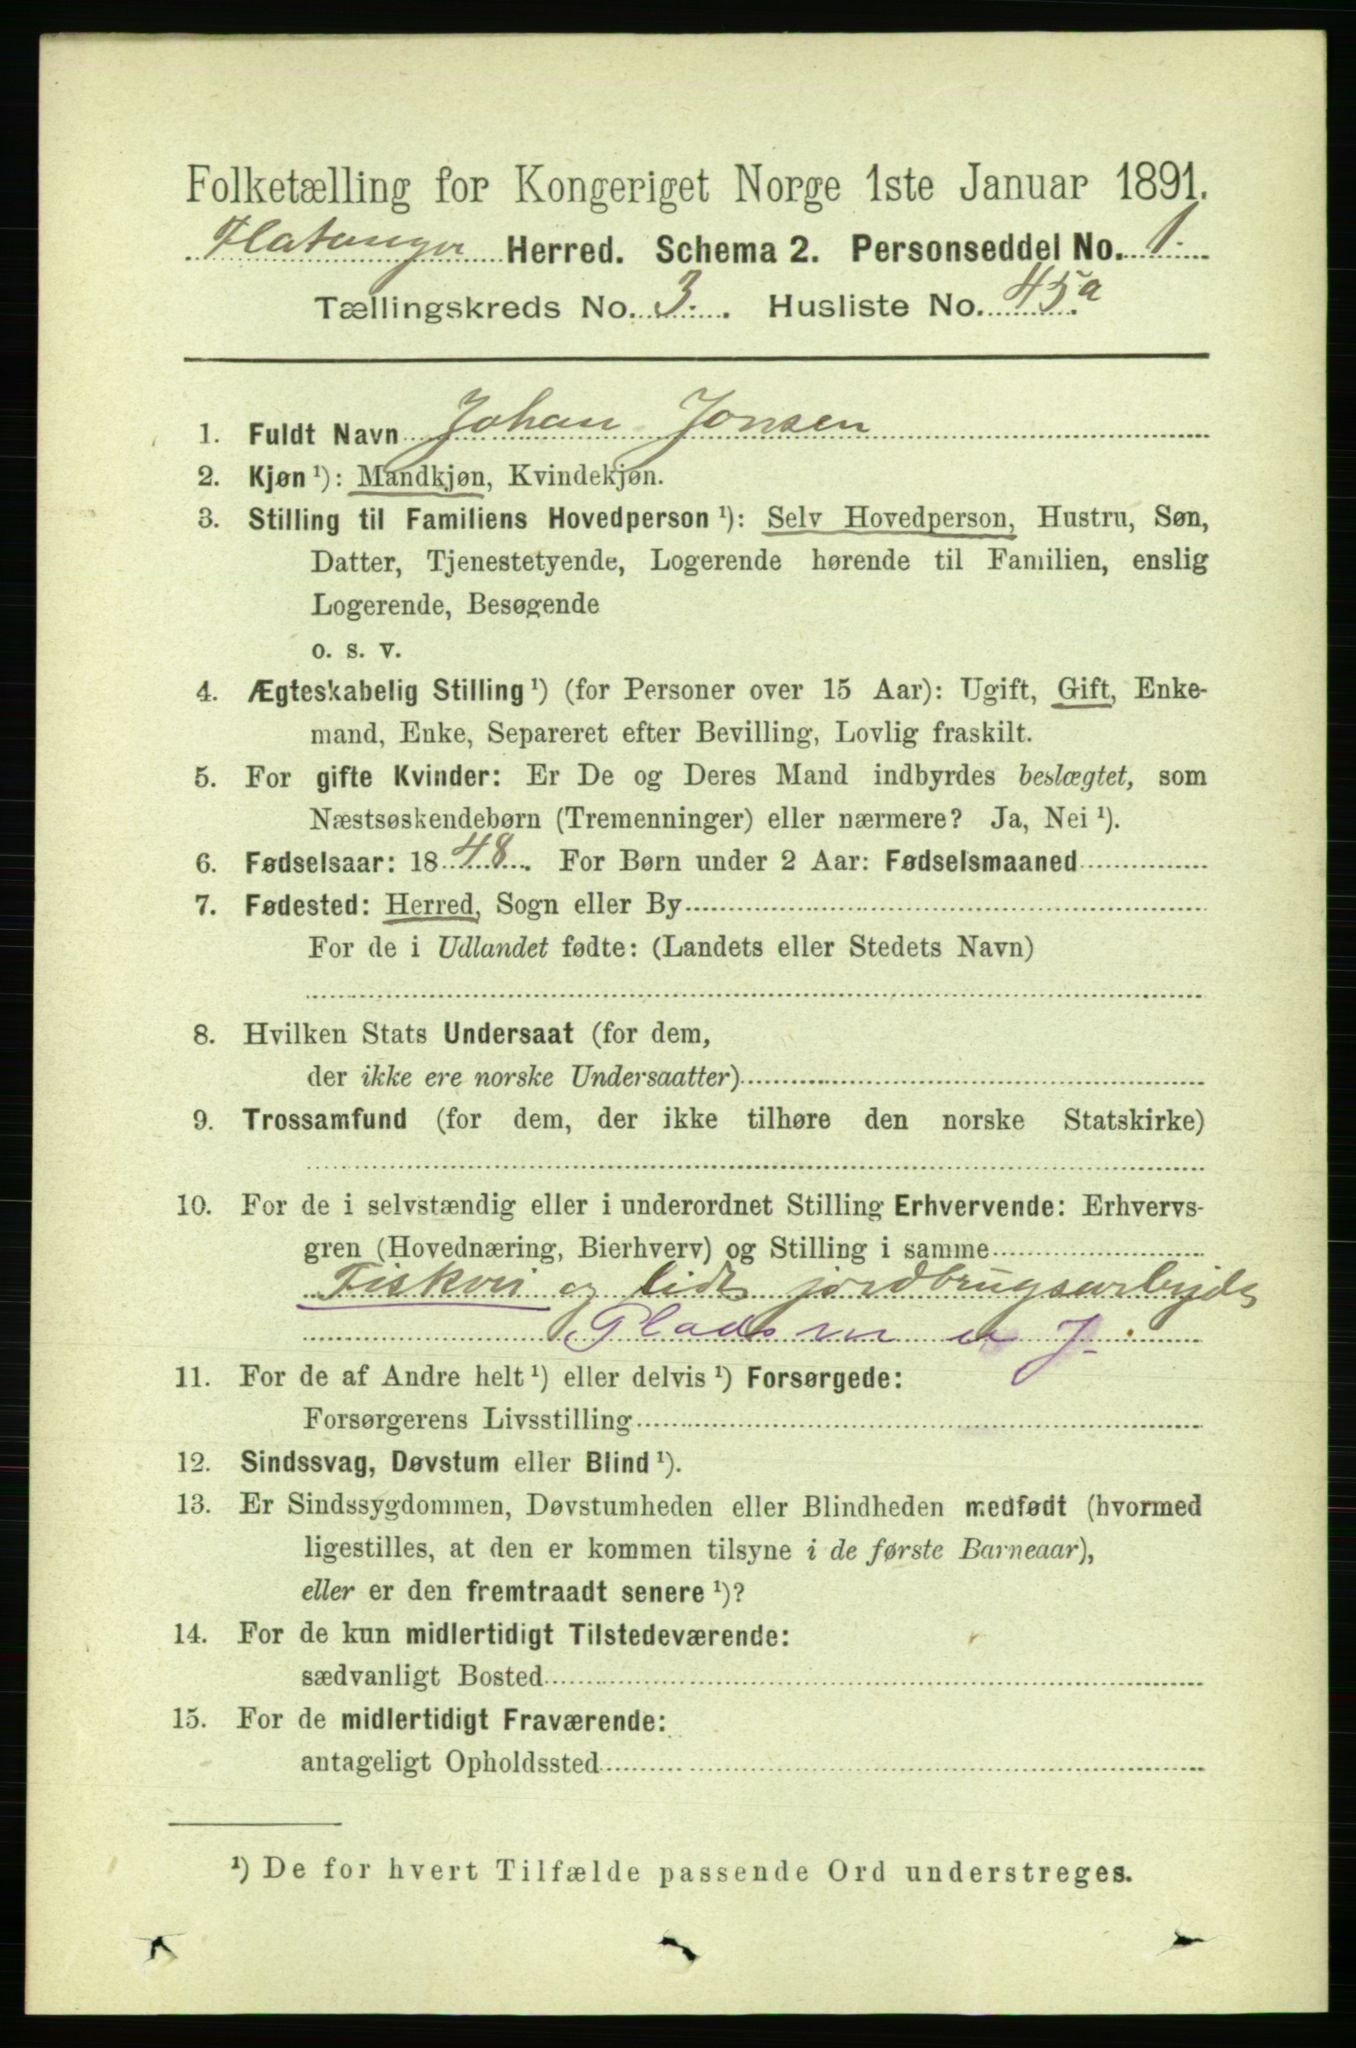 Folketælling for Kongeriget Norge 1ste Januar 1891.
Flatanger Herred. Schema 2. Personseddel No. 1.
Tællingskreds No. 3. Husliste No. 45a
1. Fuldt Navn Johan Jonsen
2. Kjøn ¹): Mandkjøn, Kvindekjøn.
3. Stilling til Familiens Hovedperson ¹): Selv Hovedperson, Hustru, Søn,
Datter, Tjenestetyende, Logerende hørende til Familien, enslig
Logerende, Besøgende
o. s. v.
4. Ægteskabelig Stilling ¹) (for Personer over 15 Aar): Ugift, Gift, Enke-
mand, Enke, Separeret efter Bevilling, Lovlig fraskilt.
5. For gifte Kvinder: Er De og Deres Mand indbyrdes beslægtet, som
Næstsøskendebørn (Tremenninger) eller nærmere? Ja, Nei ¹).
6. Fødselsaar: 1848. For Børn under 2 Aar: Fødselsmaaned
7. Fødested: Herred, Sogn eller By
For de i Udlandet fødte: (Landets eller Stedets Navn)
8. Hvilken Stats Undersaat (for dem,
der ikke ere norske Undersaatter)
9. Trossamfund (for dem, der ikke tilhøre den norske Statskirke)
10. For de i selvstændig eller i underordnet Stilling Erhvervende: Erhvervs-
gren (Hovednæring, Bierhverv) og Stilling i samme
Fiskeri og lidt jordbrugsarbejde
Pladsm J.
11. For de af Andre helt ¹) eller delvis ¹) Forsørgede:
Forsørgerens Livsstilling
12. Sindssvag, Døvstum eller Blind ¹).
13. Er Sindssygdommen, Døvstumheden eller Blindheden medfødt (hvormed
ligestilles, at den er kommen tilsyne i de første Barneaar),
eller er den fremtraadt senere ¹)?
14. For de kun midlertidigt Tilstedeværende:
sædvanligt Bosted
15. For de midlertidigt Fraværende:
antageligt Opholdssted
¹) De for hvert Tilfælde passende Ord understreges.